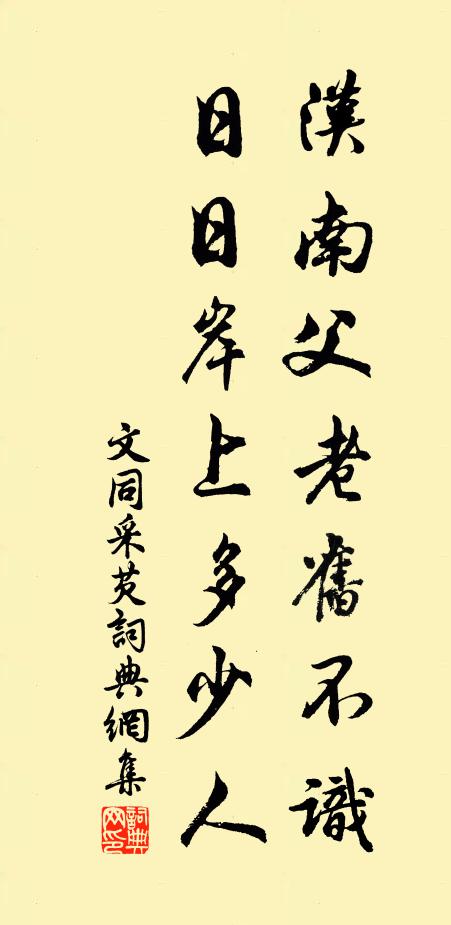 漢南父老舊不識
日日岸上多少人
文同采芡詞典網集
詞典
網印